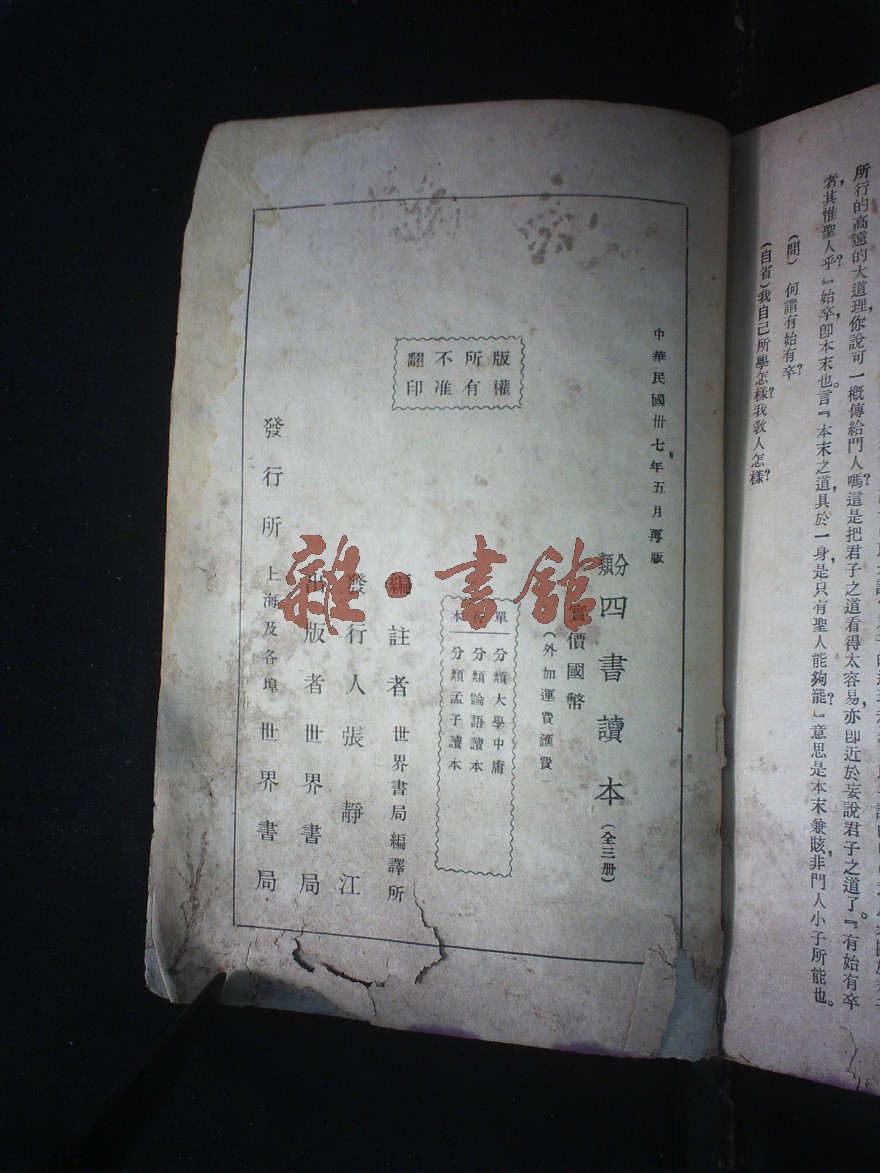 所行的高遠的大道理,你說可一概傳給門人嗎?這是把君子之道看得太容易,亦即近於妄說君子之道了。『有始有卒
者,其惟聖人乎?』始卒卽本末也。言『本末之道,具於一身,是只有聖人能夠罷?』意思是本末兼賅,非門人小子所能也。
(問) 何謂有始有卒?
(自省)我自己所學怎樣?我敎人怎樣?
中華民國卅七年五月再版
分類四書讀本(全三册)
實價國幣
(外加運費匯費)
單行本
分類大學中庸
分類論語讀本
分類孟子讀本
版權
所有
不准
翻印
編註者 世界書局編譯所
發行人 張靜江
出版者 世界書局
發行所 上海及各埠 世界書局
雜·書館